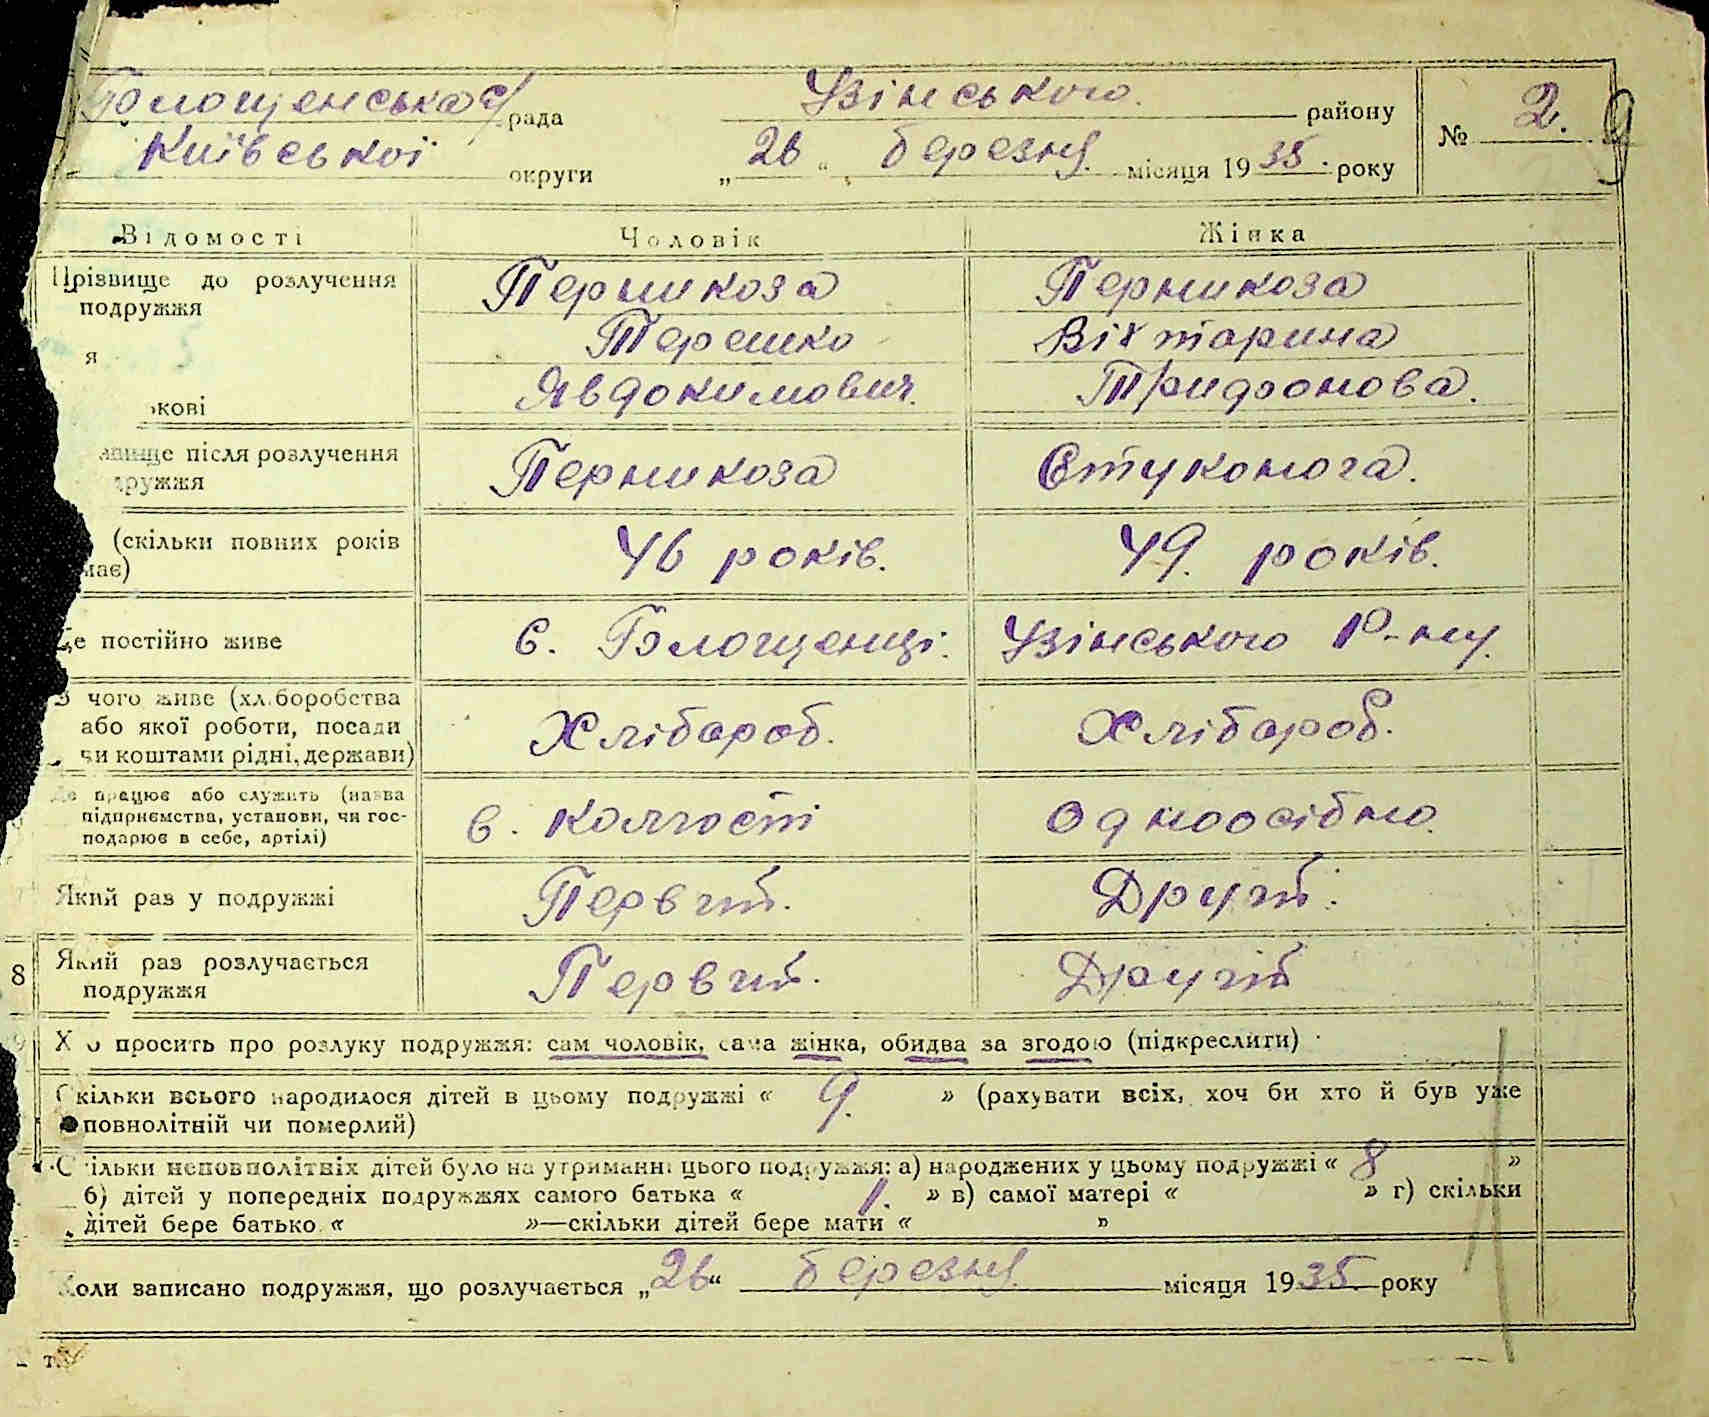 Блощенська с/рада Узінського району № 2. 9
Київської округи „26“ березня місяця 1935 року
Відомості Чоловік Жінка
Прізвище до розлучення Перникоза Перникоза
подружжя
я Терешко Віхтарина
кові Явдокимович. Трифонова.
вище після розлучення Перникоза Стуконога.
дружжя
(скільки повних років 46 років. 49. років.
має)
Де постійно живе с. Блощенці. Узінського Р-ну.
З чого живе (хліборобства
або якої роботи, посади Хлібароб. Хлібароб.
чи коштами рідні, держави)
Де працює або служить (назва
підприємства, установи, чи гос- в. колгості Одноосібно.
подарює в себе, артілі)
Який раз у подружжі Первий. Другий.
8 Який раз розлучається Первий. Другій
подружжя
9 Хто просить про розлуку подружжя: сам чоловік, сама жінка, обидва за згодою (підкреслити)
Скільки всього народилося дітей в цьому подружжі « 9. » (рахувати всіх, хоч би хто й був уже
повнолітній чи померлий)
Скільки неповнолітніх дітей було на утриманні цього подружжя: а) народжених у цьому подружжі « 8 »
б) дітей у попередніх подружжях самого батька « 1. » в) самої матері « » г) скільки
дітей бере батько « »—скільки дітей бере мати « »
Коли записано подружжя, що розлучається „26“ березня місяця 1935 року